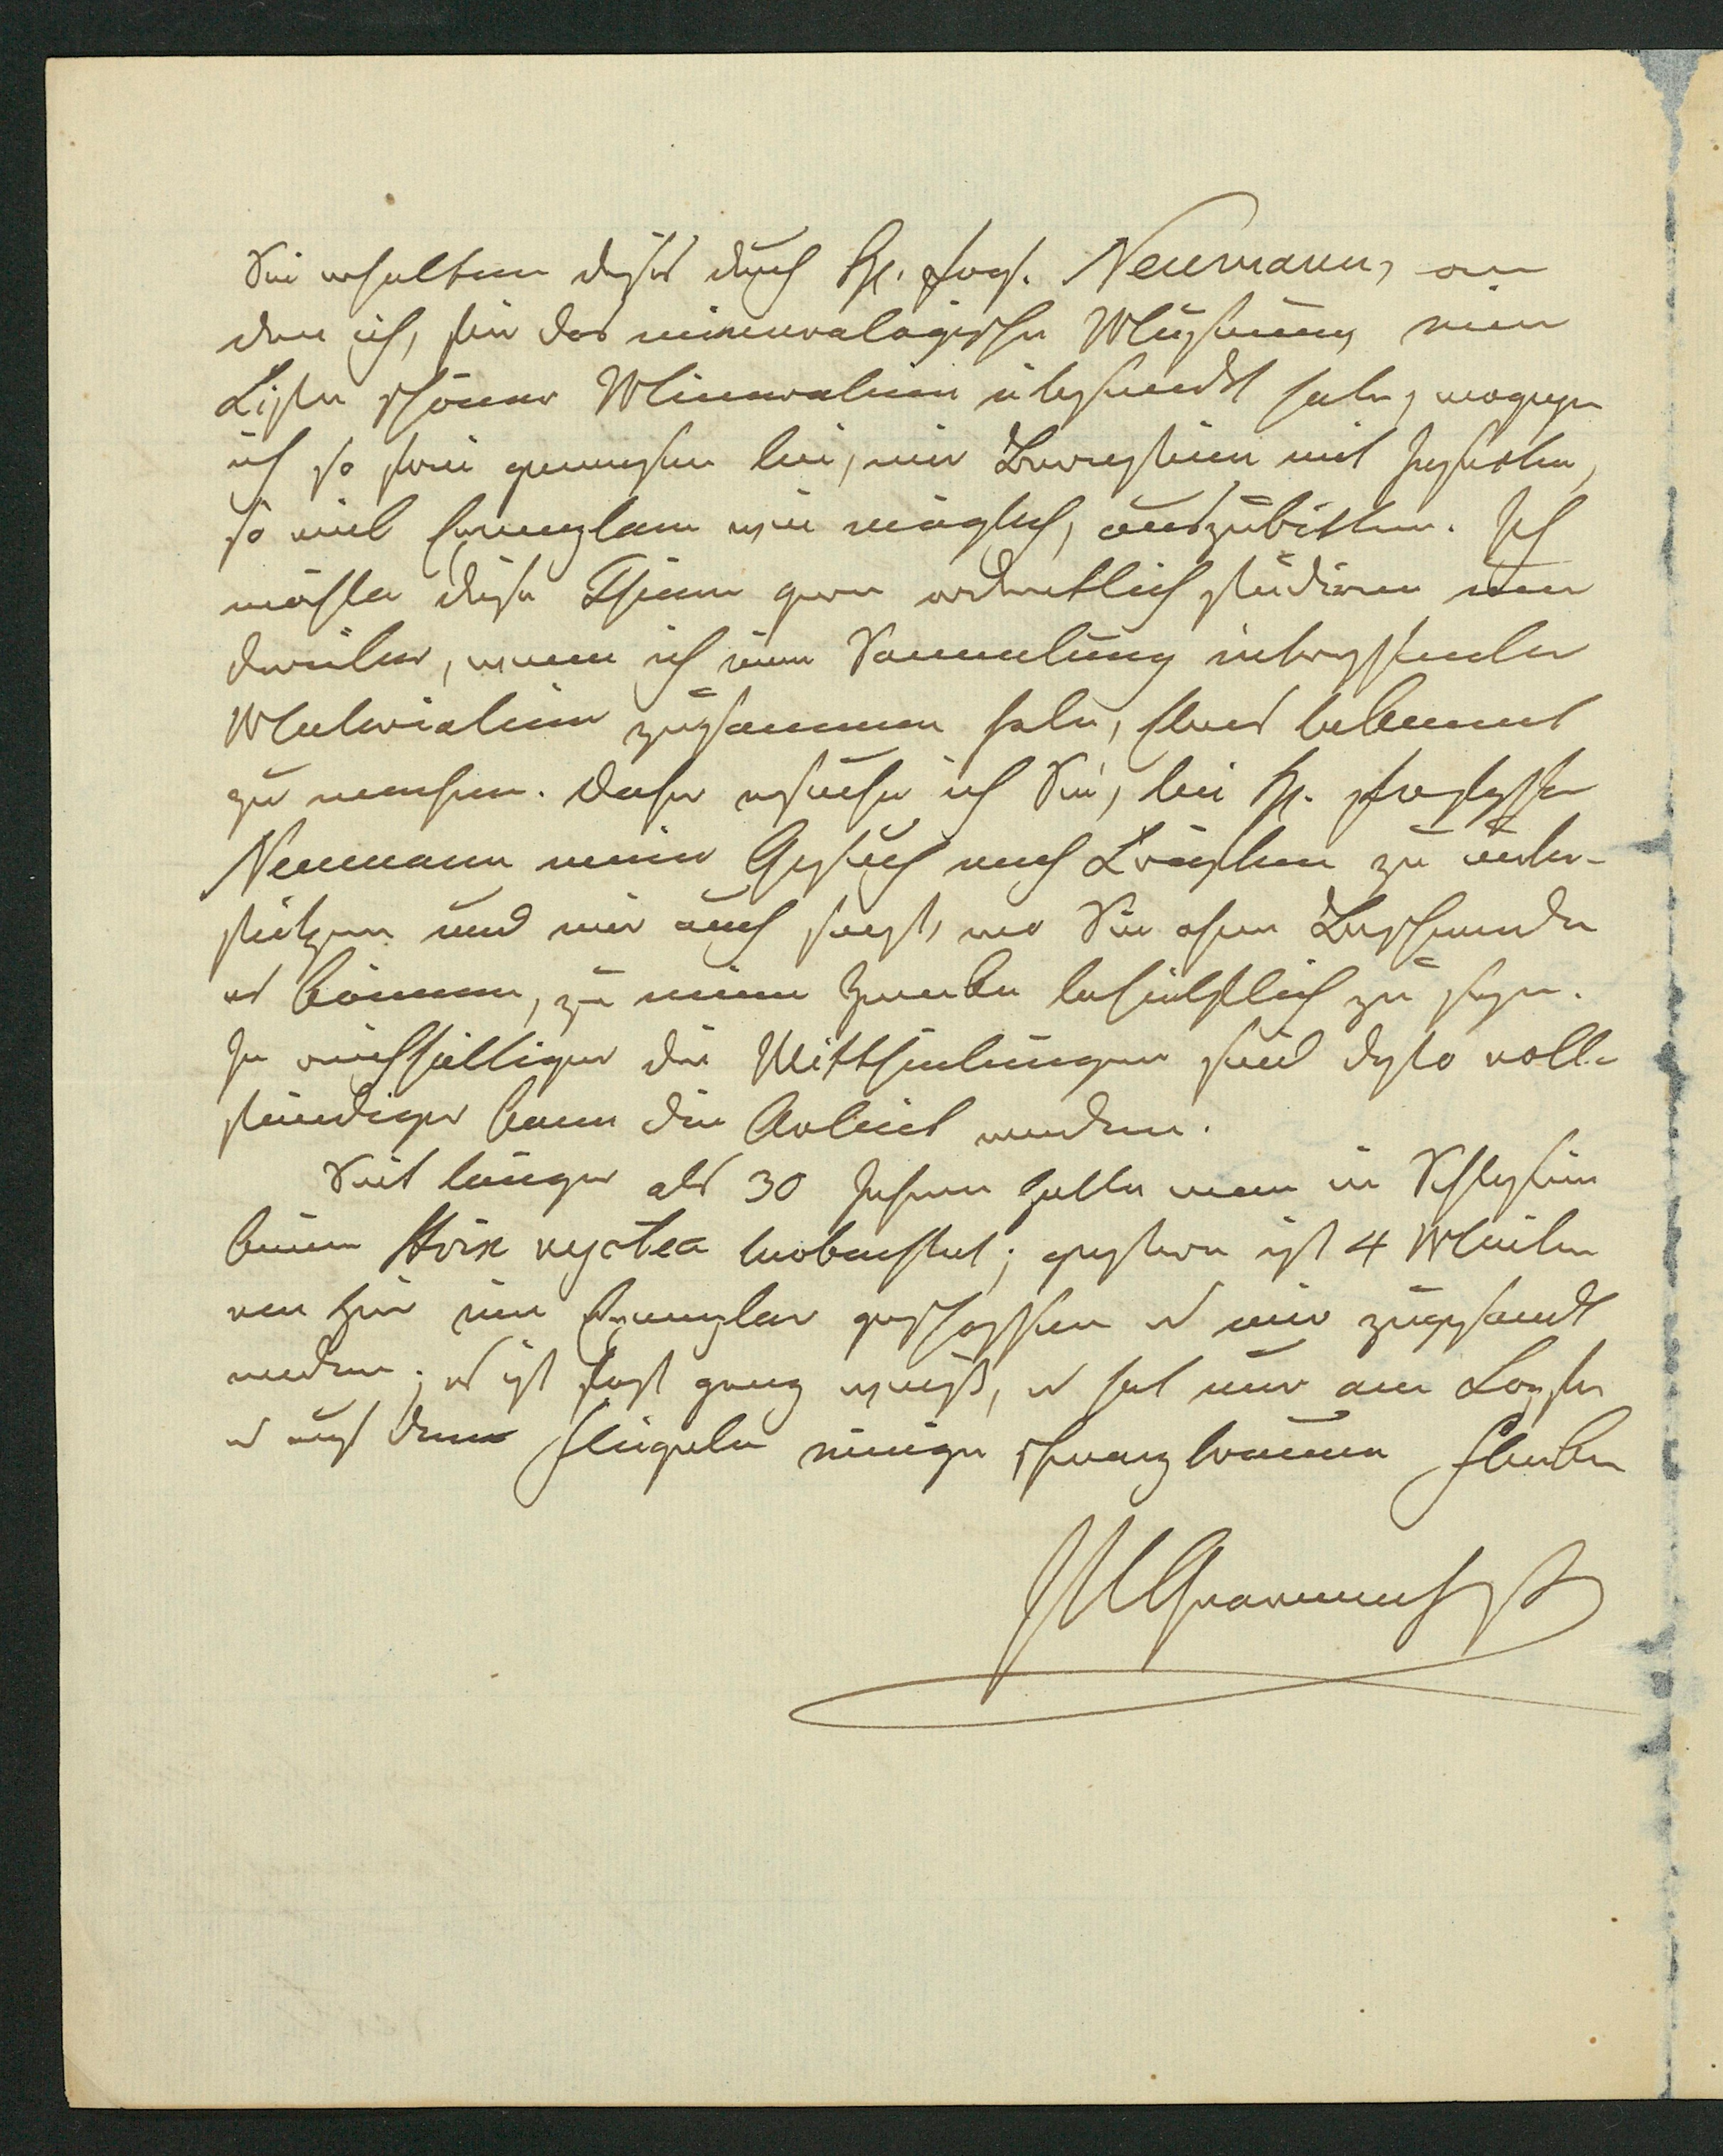 Sie erhalten dieses durch H. Prof. Neumann, an
den ich, für das mineralogische Museum eine
Kiste schöner Mineralien übersendet habe, wogegen
ich so frei gewesen bin, mir Bernstein mit Insekten,
so viel Exemplare wie möglich, auszubitten. Ich
möchte diese Thiere gern ordentlich studiren und
darüber, wenn ich eine Sammlung interessanter
Materialien zusammen habe, etwas bekannt
zu machen. Daher ersuche ich Sie, bei H. Professor
Neumann mein Gesuch nach Kräften zu unter-
stützen und mir auch selbst, wo Sie ohne Beschwerde
es können, zu meinem Zwecke behülflich zu seyn.
Je reichhaltiger die Mittheilungen sind desto voll-
ständiger kann die Arbeit werden.
Seit länger als 30 Jahren hatte man in Schlesien
keine Strix nyctea beobachtet; gestern ist 4 Meilen
von hier ein Exemplar geschossen u mir zugesandt
worden; es ist fast ganz weiß, u hat nur am Kopfe
u auf den Flügeln einige schwarzbraune Flecken
JLCGravenhorst